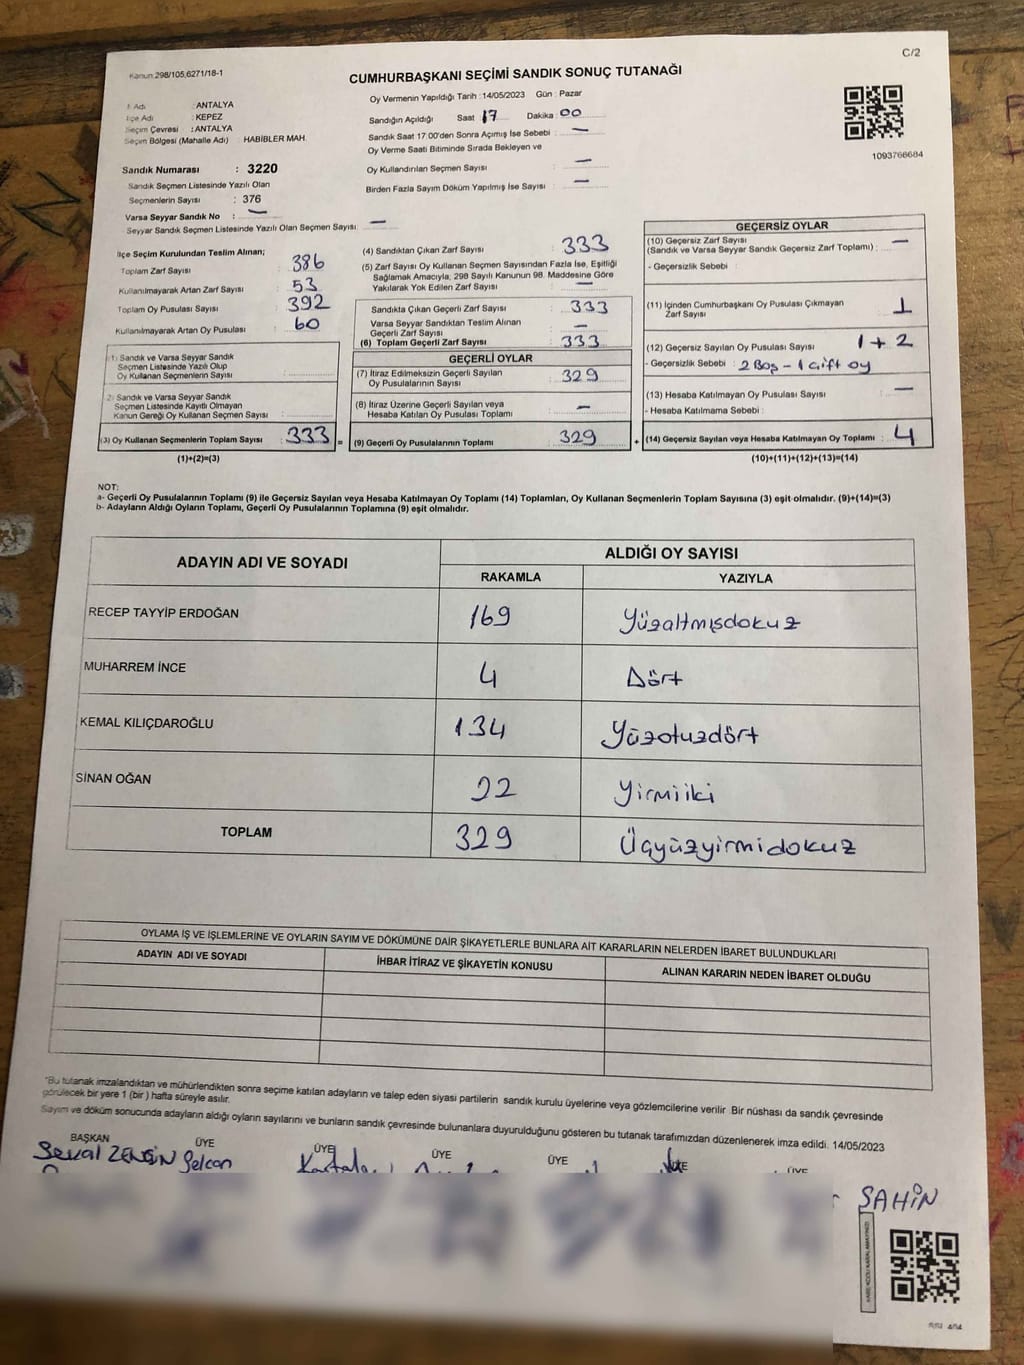 C/2
Kanun:298/105,6271/18-1
CUMHURBAŞKANI SEÇİMİ SANDIK SONUÇ TUTANAĞI
İl Adı : ANTALYA
İlçe Adı : KEPEZ
Seçim Çevresi : ANTALYA
Seçim Bölgesi (Mahalle Adı) HABİBLER MAH.
Oy Vermenin Yapıldığı Tarih :14/05/2023 Gün : Pazar
Sandığın Açıldığı Saat 17 Dakika : 00
Sandık Saat 17.00'den Sonra Açılmış İse Sebebi : —
Oy Verme Saati Bitiminde Sırada Bekleyen ve
Oy Kullandırılan Seçmen Sayısı : —
Birden Fazla Sayım Döküm Yapılmış İse Sayısı : —
1093766684
Sandık Numarası : 3220
Sandık Seçmen Listesinde Yazılı Olan
Seçmenlerin Sayısı : 376
Varsa Seyyar Sandık No : —
Seyyar Sandık Seçmen Listesinde Yazılı Olan Seçmen Sayısı: —
İlçe Seçim Kurulundan Teslim Alınan;
Toplam Zarf Sayısı : 386
Kullanılmayarak Artan Zarf Sayısı : 53
Toplam Oy Pusulası Sayısı : 392
Kullanılmayarak Artan Oy Pusulası : 60
(1) Sandık ve Varsa Seyyar Sandık
Seçmen Listesinde Yazılı Olup
Oy Kullanan Seçmenlerin Sayısı :
(2) Sandık ve Varsa Seyyar Sandık
Seçmen Listesinde Kayıtlı Olmayan
Kanun Gereği Oy Kullanan Seçmen Sayısı :
(3) Oy Kullanan Seçmenlerin Toplam Sayısı : 333 =
(1)+(2)=(3)
(4) Sandıktan Çıkan Zarf Sayısı : 333
(5) Zarf Sayısı Oy Kullanan Seçmen Sayısından Fazla İse, Eşitliği
Sağlamak Amacıyla, 298 Sayılı Kanunun 98. Maddesine Göre
Yakılarak Yok Edilen Zarf Sayısı : —
Sandıkta Çıkan Geçerli Zarf Sayısı : 333
Varsa Seyyar Sandıktan Teslim Alınan
Geçerli Zarf Sayısı : —
(6) Toplam Geçerli Zarf Sayısı : 333
GEÇERLİ OYLAR
(7) İtiraz Edilmeksizin Geçerli Sayılan
Oy Pusulalarının Sayısı : 329
(8) İtiraz Üzerine Geçerli Sayılan veya
Hesaba Katılan Oy Pusulası Toplamı : —
(9) Geçerli Oy Pusulalarının Toplamı : 329 +
GEÇERSİZ OYLAR
(10) Geçersiz Zarf Sayısı
(Sandık ve Varsa Seyyar Sandık Geçersiz Zarf Toplamı) : —
- Geçersizlik Sebebi :
(11) İçinden Cumhurbaşkanı Oy Pusulası Çıkmayan
Zarf Sayısı : 1
(12) Geçersiz Sayılan Oy Pusulası Sayısı : 1 + 2
- Geçersizlik Sebebi : 2 Boş - 1 Çift oy
(13) Hesaba Katılmayan Oy Pusulası Sayısı : —
- Hesaba Katılmama Sebebi :
(14) Geçersiz Sayılan veya Hesaba Katılmayan Oy Toplamı : 4
(10)+(11)+(12)+(13)=(14)
NOT:
a- Geçerli Oy Pusulalarının Toplamı (9) ile Geçersiz Sayılan veya Hesaba Katılmayan Oy Toplamı (14) Toplamları, Oy Kullanan Seçmenlerin Toplam Sayısına (3) eşit olmalıdır. (9)+(14)=(3)
b- Adayların Aldığı Oyların Toplamı, Geçerli Oy Pusulalarının Toplamına (9) eşit olmalıdır.
ADAYIN ADI VE SOYADI ALDIĞI OY SAYISI
RAKAMLA YAZIYLA
RECEP TAYYİP ERDOĞAN 169 Yüzaltmışdokuz
MUHARREM İNCE 4 Dört
KEMAL KILIÇDAROĞLU 134 Yüzotuzdört
SİNAN OĞAN 22 Yirmiiki
TOPLAM 329 Üçyüzyirmidokuz
OYLAMA İŞ VE İŞLEMLERİNE VE OYLARIN SAYIM VE DÖKÜMÜNE DAİR ŞİKAYETLERLE BUNLARA AİT KARARLARIN NELERDEN İBARET BULUNDUKLARI
ADAYIN ADI VE SOYADI İHBAR İTİRAZ VE ŞİKAYETİN KONUSU ALINAN KARARIN NEDEN İBARET OLDUĞU
*Bu tutanak imzalandıktan ve mühürlendikten sonra seçime katılan adayların ve talep eden siyasi partilerin sandık kurulu üyelerine veya gözlemcilerine verilir. Bir nüshası da sandık çevresinde
görülecek bir yere 1 (bir ) hafta süreyle asılır.
Sayım ve döküm sonucunda adayların aldığı oyların sayılarını ve bunların sandık çevresinde bulunanlara duyurulduğunu gösteren bu tutanak tarafımızdan düzenlenerek imza edildi. 14/05/2023
BAŞKAN ÜYE ÜYE ÜYE ÜYE ÜYE ÜYE
ZENGİN Selcan
ŞAHİN